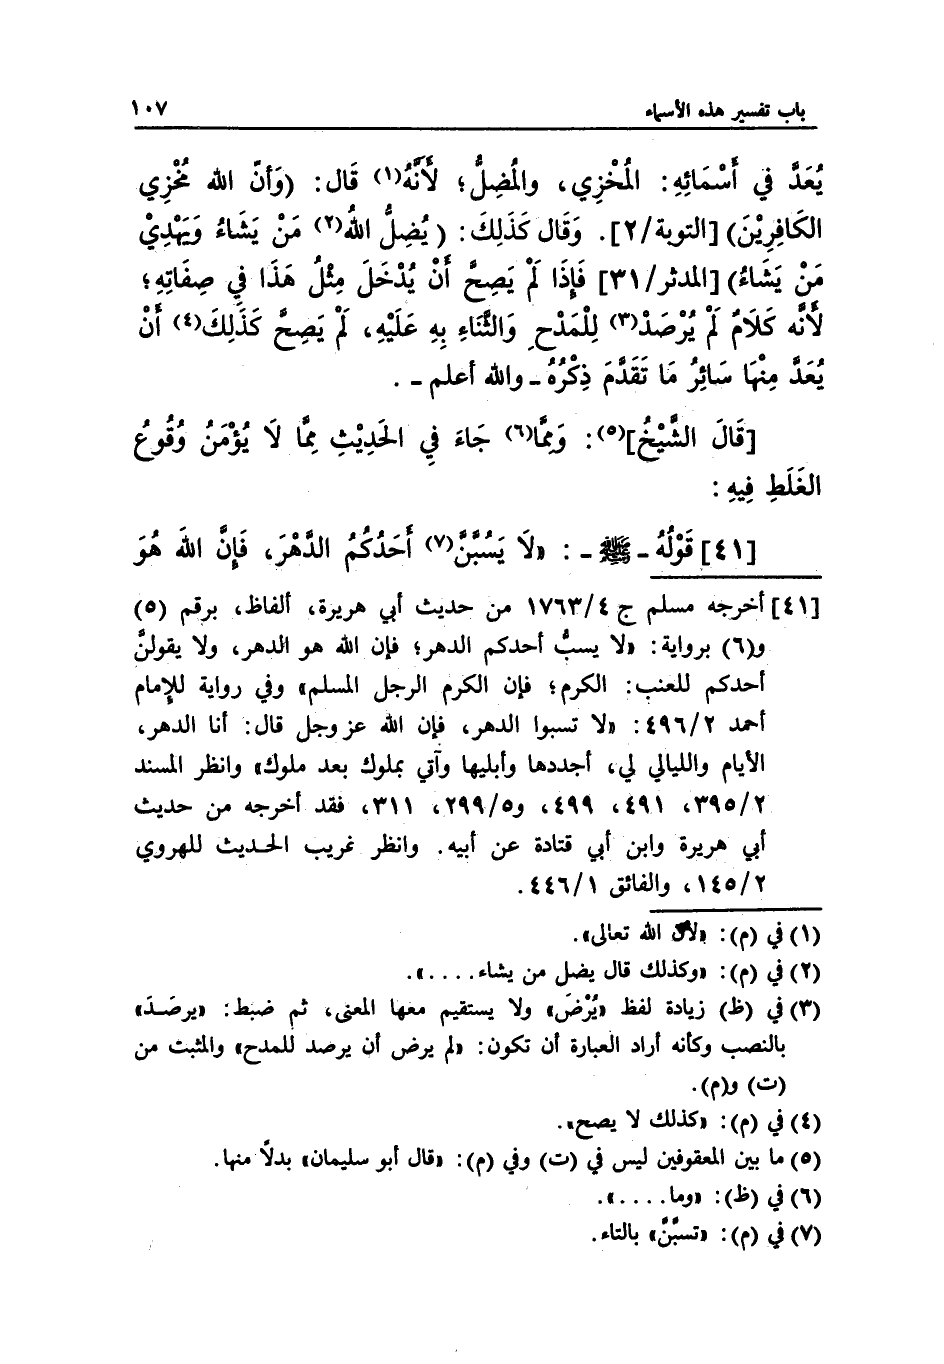 باب تفسير هذه الأسماء ١٠٧
يُعَدَّ في أَسْمَائِهِ: المُخْزِي، والمُضِلُّ؛ لأَنَّهُ(١) قَالَ: (وَأنّ الله مُخْزِي
الكَافِرِيْنَ) [التوبة/٢]. وَقَال كَذَلِكَ: (يُضِلُّ اللهُ(٢) مَنْ يَشَاءُ وَيَهْدِيْ
مَنْ يَشَاءُ) [المدثر/٣١] فَإِذَا لَمْ يَصِحَّ أَنْ يُدْخَلَ مِثْلُ هَذَا فِي صِفَاتِهِ؛
لأنَّه كَلَامٌ لَمْ يُرْصَدْ(٣) لِلْمَدْحِ وَالثَّنَاءِ بِهِ عَلَيْهِ، لَمْ يَصِحَّ كَذَلِكَ(٤) أَنْ
يُعَدَّ مِنْهَا سَائِرُ مَا تَقَدَّمَ ذِكْرُهُ ـ والله أعلم ـ .
[قَالَ الشَّيْخُ](٥): وَمِمَّا(٦) جَاءَ فِي الحَدِيْثِ مِمَّا لَا يُؤْمَنُ وُقُوعُ
الغَلَطِ فِيهِ:
[٤١] قَوْلُهُ ـ ﷺ ـ : «لَا يَسُبَّنَّ(٧) أَحَدُكُمُ الدَّهْرَ، فَإِنَّ اللهَ هُوَ
[٤١] أخرجه مسلم ج ١٧٦٣/٤ من حديث أبي هريرة، ألفاظ، برقم (٥)
و(٦) برواية: «لا يسبُّ أحدكم الدهر؛ فإن الله هو الدهر، ولا يقولنَّ
أحدكم للعنب: الكرم؛ فإن الكرم الرجل المسلم» وفي رواية للإمام
أحمد ٤٩٦/٢: «لا تسبوا الدهر، فإن الله عز وجل قال: أنا الدهر،
الأيام والليالي لي، أجددها وأبليها وآتي بملوك بعد ملوك» وانظر المسند
٣٩٥/٢، ٤٩١، ٤٩٩، و٢٩٩/٥، ٣١١، فقد أخرجه من حديث
أبي هريرة وابن أبي قتادة عن أبيه. وانظر غريب الحديث للهروي
١٤٥/٢، والفائق ٤٤٦/١.
(١) في (م): «لأن الله تعالى».
(٢) في (م): «وكذلك قال يضل من يشاء....».
(٣) في (ظ) زيادة لفظ «يُرْضَ» ولا يستقيم معها المعنى، ثم ضبط: «يرصَدَ»
بالنصب وكأنه أراد العبارة أن تكون: «لم يرض أن يرصد للمدح» والمثبت من
(ت) و(م).
(٤) في (م): «كذلك لا يصح».
(٥) ما بين المعقوفين ليس في (ت) وفي (م): «قال أبو سليمان» بدلاً منها.
(٦) في (ظ): «وما....».
(٧) في (م): «تسبُّنَّ» بالتاء.